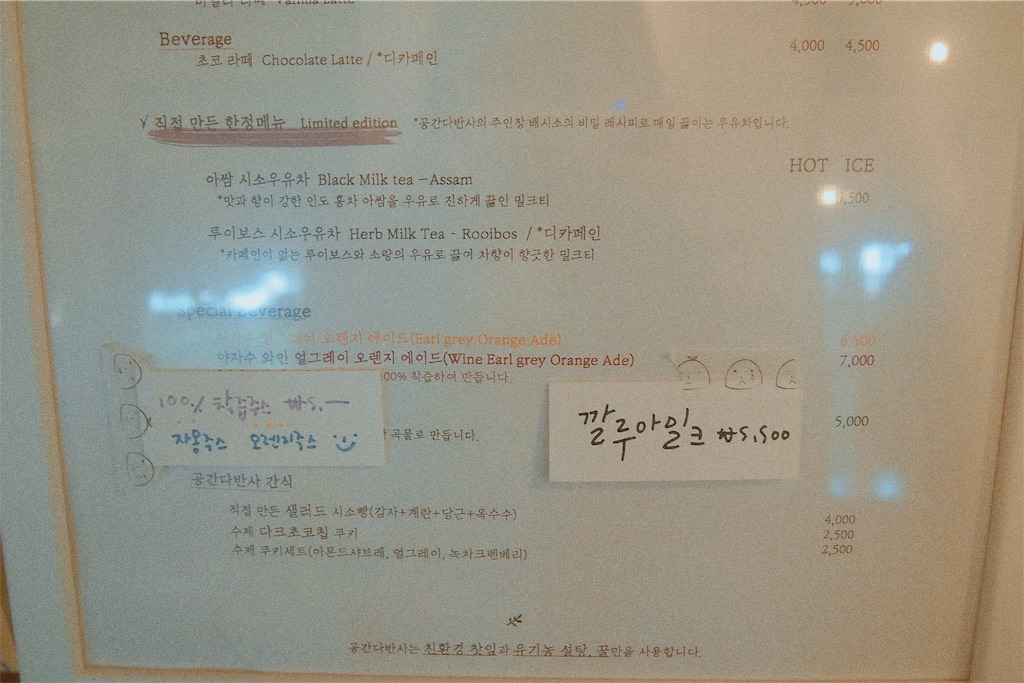 바닐라 라떼 Vanilla Latte 4,500 5,000
Beverage 4,000 4,500
초코 라떼 Chocolate Latte / *디카페인
직접 만든 한정메뉴 Limited edition *공간다반사의 주인장 배시소의 비밀 레시피로 매일 끓이는 우유차입니다.
HOT ICE
아쌈 시소우유차 Black Milk tea - Assam
*맛과 향이 강한 인도 홍차 아쌈을 우유로 진하게 끓인 밀크티
루이보스 시소우유차 Herb Milk Tea - Rooibos / *디카페인
*카페인이 없는 루이보스와 소량의 우유로 끓여 차향이 향긋한 밀크티
Special Beverage
얼그레이 오렌지 에이드(Earl grey Orange Ade) 6,500
야자수 와인 얼그레이 오렌지 에이드(Wine Earl grey Orange Ade) 7,000
100% 착즙하여 만듭니다.
100% 착즙주스 ₩5,—
자몽주스 오렌지주스
깔루아밀크 ₩5,500
5,000
곡물로 만듭니다.
공간다반사 간식
직접 만든 샐러드 시소빵(감자+계란+당근+옥수수) 4,000
수제 다크초코칩 쿠키 2,500
수제 쿠키세트(아몬드샤브레, 얼그레이, 녹차크렌베리) 2,500
공간다반사는 친환경 찻잎과 유기농 설탕, 꿀만을 사용합니다.